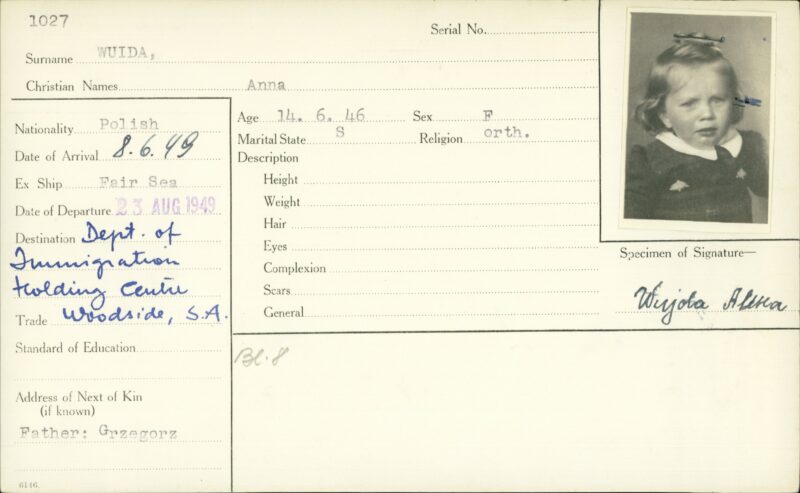 1027
Serial No.
Surname WUIDA,
Christian Names Anna
Nationality Polish
Date of Arrival 8.6.49
Ex Ship Fair Sea
Date of Departure 23 AUG 1949
Destination Dept. of
Immigration
Holding Centre
Trade Woodside, S.A.
Standard of Education
Address of Next of Kin
(if known)
Father: Grzegorz
6146.
Age 14. 6. 46 Sex F
Marital State S Religion orth.
Description
Height
Weight
Hair
Eyes
Complexion
Scars
General
Bl. 8
Specimen of Signature—
Wujda